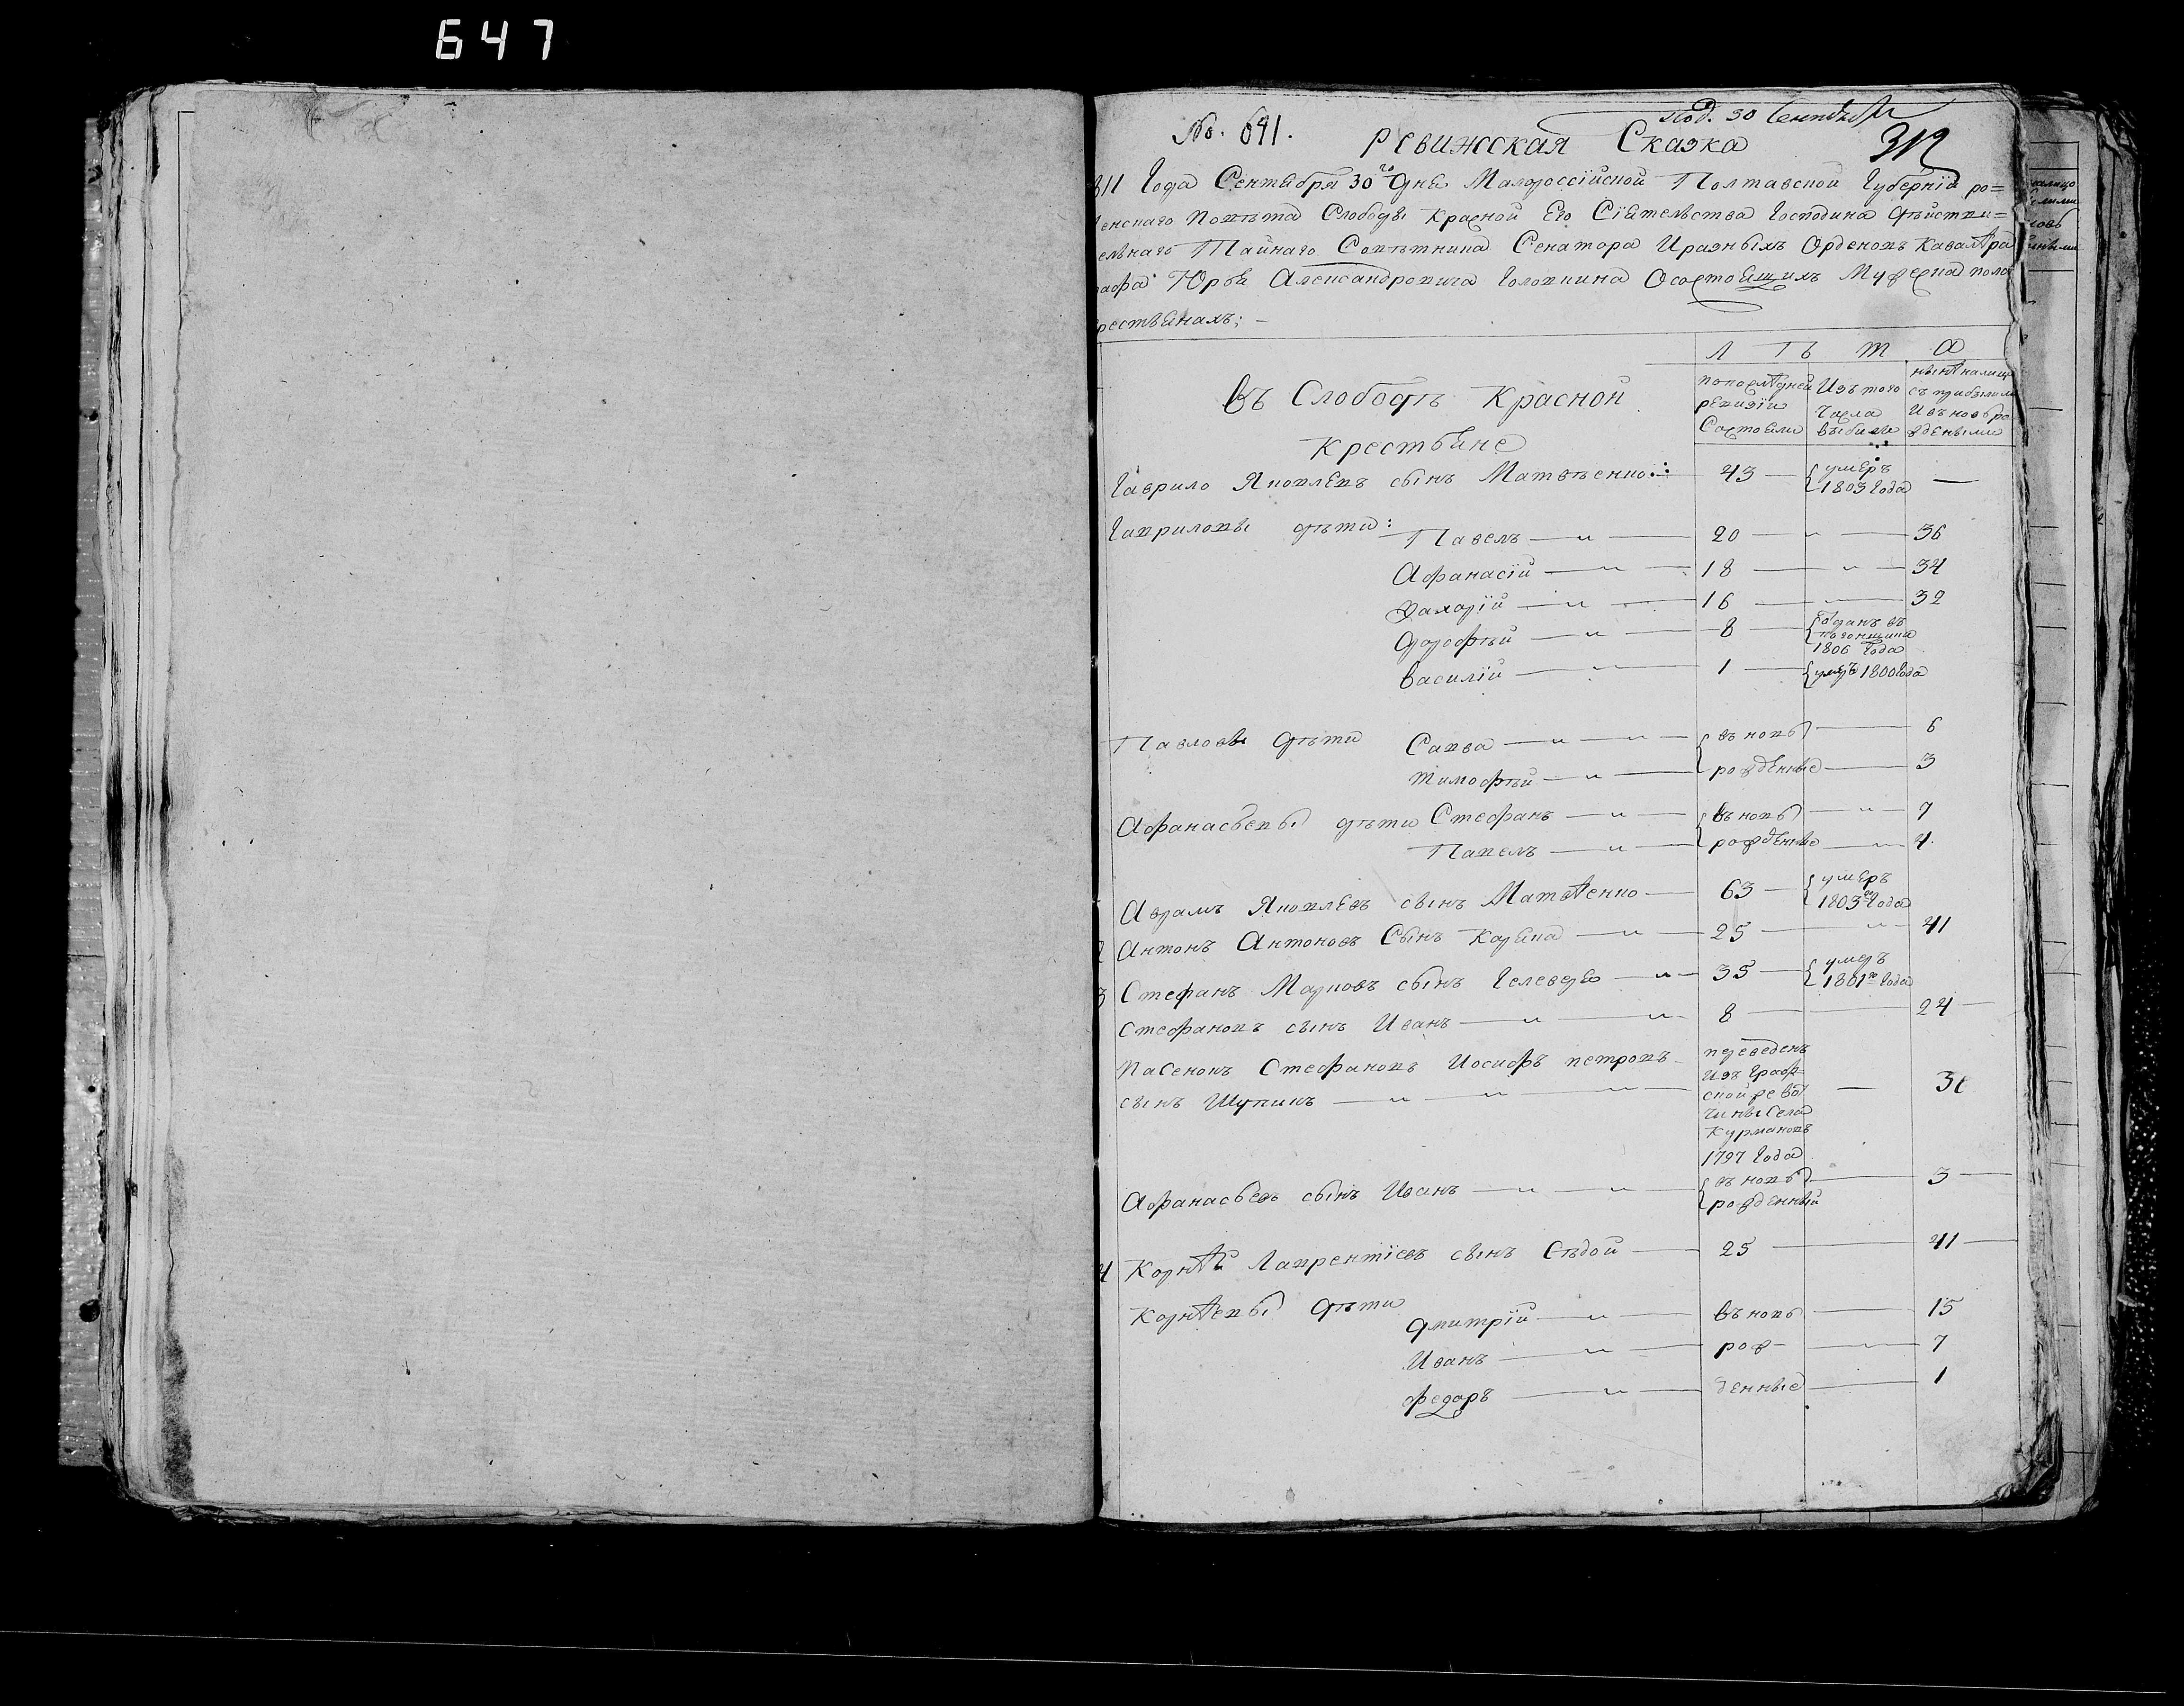 647
No. 641.
Под. 30 Сентября
Ревижская Сказка
312
811 Года Сентября 30го Дня Малороссійской Полтавской Губерніи ро=
менского Повѣта Слободы Красной Его Сіятельства Господина Дѣйстви=
ельнаго Тайнаго Совѣтника Сенатора И разныхъ Орденовъ Кавалѣра
рафа Юрья Александровича Головкина О состоящихъ Мужеска пола
рестьянахъ; —
Л Ѣ Т А
Въ Слободѣ Красной
Крестьяне
попослѣдней ревизіи Состояли
Изъ того Числа выбыли
нынѣ налицо съ прибылыми И вновь рожденными
Гаврило Яковлевъ сынъ Матвѣенко — 43 — умеръ 1803 Года —
Гавриловы дѣти: Павелъ — 20 — 36
Афанасій — 18 — 34
Захарій — 16 — 32
Дорофѣй — 8 — отданъ въ погонщики 1806 Года
Василій — 1 — умеръ 1800 Года
Павловы дѣти Савва — вновь — 6
Тимофѣй — рожденные — 3
Афанасьевы дѣти Стефанъ — вновь — 7
Павелъ — рожденные — 4
Аврамъ Яковлевъ сынъ Матвѣенко — 63 — умеръ 1803 Года
2 Антонъ Антоновъ Сынъ Каряка — 25 — 41
3 Стефанъ Марковъ сынъ Гелеверя — 35 — умеръ 1801го Года
Стефановъ сынъ Иванъ — 8 — 24
Пасенокъ Стефановъ Иосифъ петровъ
сынъ Шупикъ — переведенъ Изъ Графской ревотчины Села Курмановъ 1797 Года —
Афанасьевъ сынъ Иванъ — вновь рожденный — 3
4 Корнѣй Лаврентіевъ сынъ Сѣдой — 25 — 41
Корнѣевы дѣти Дмитрій — вновь — 15
Иванъ — рож- — 7
Федоръ — денные — 1